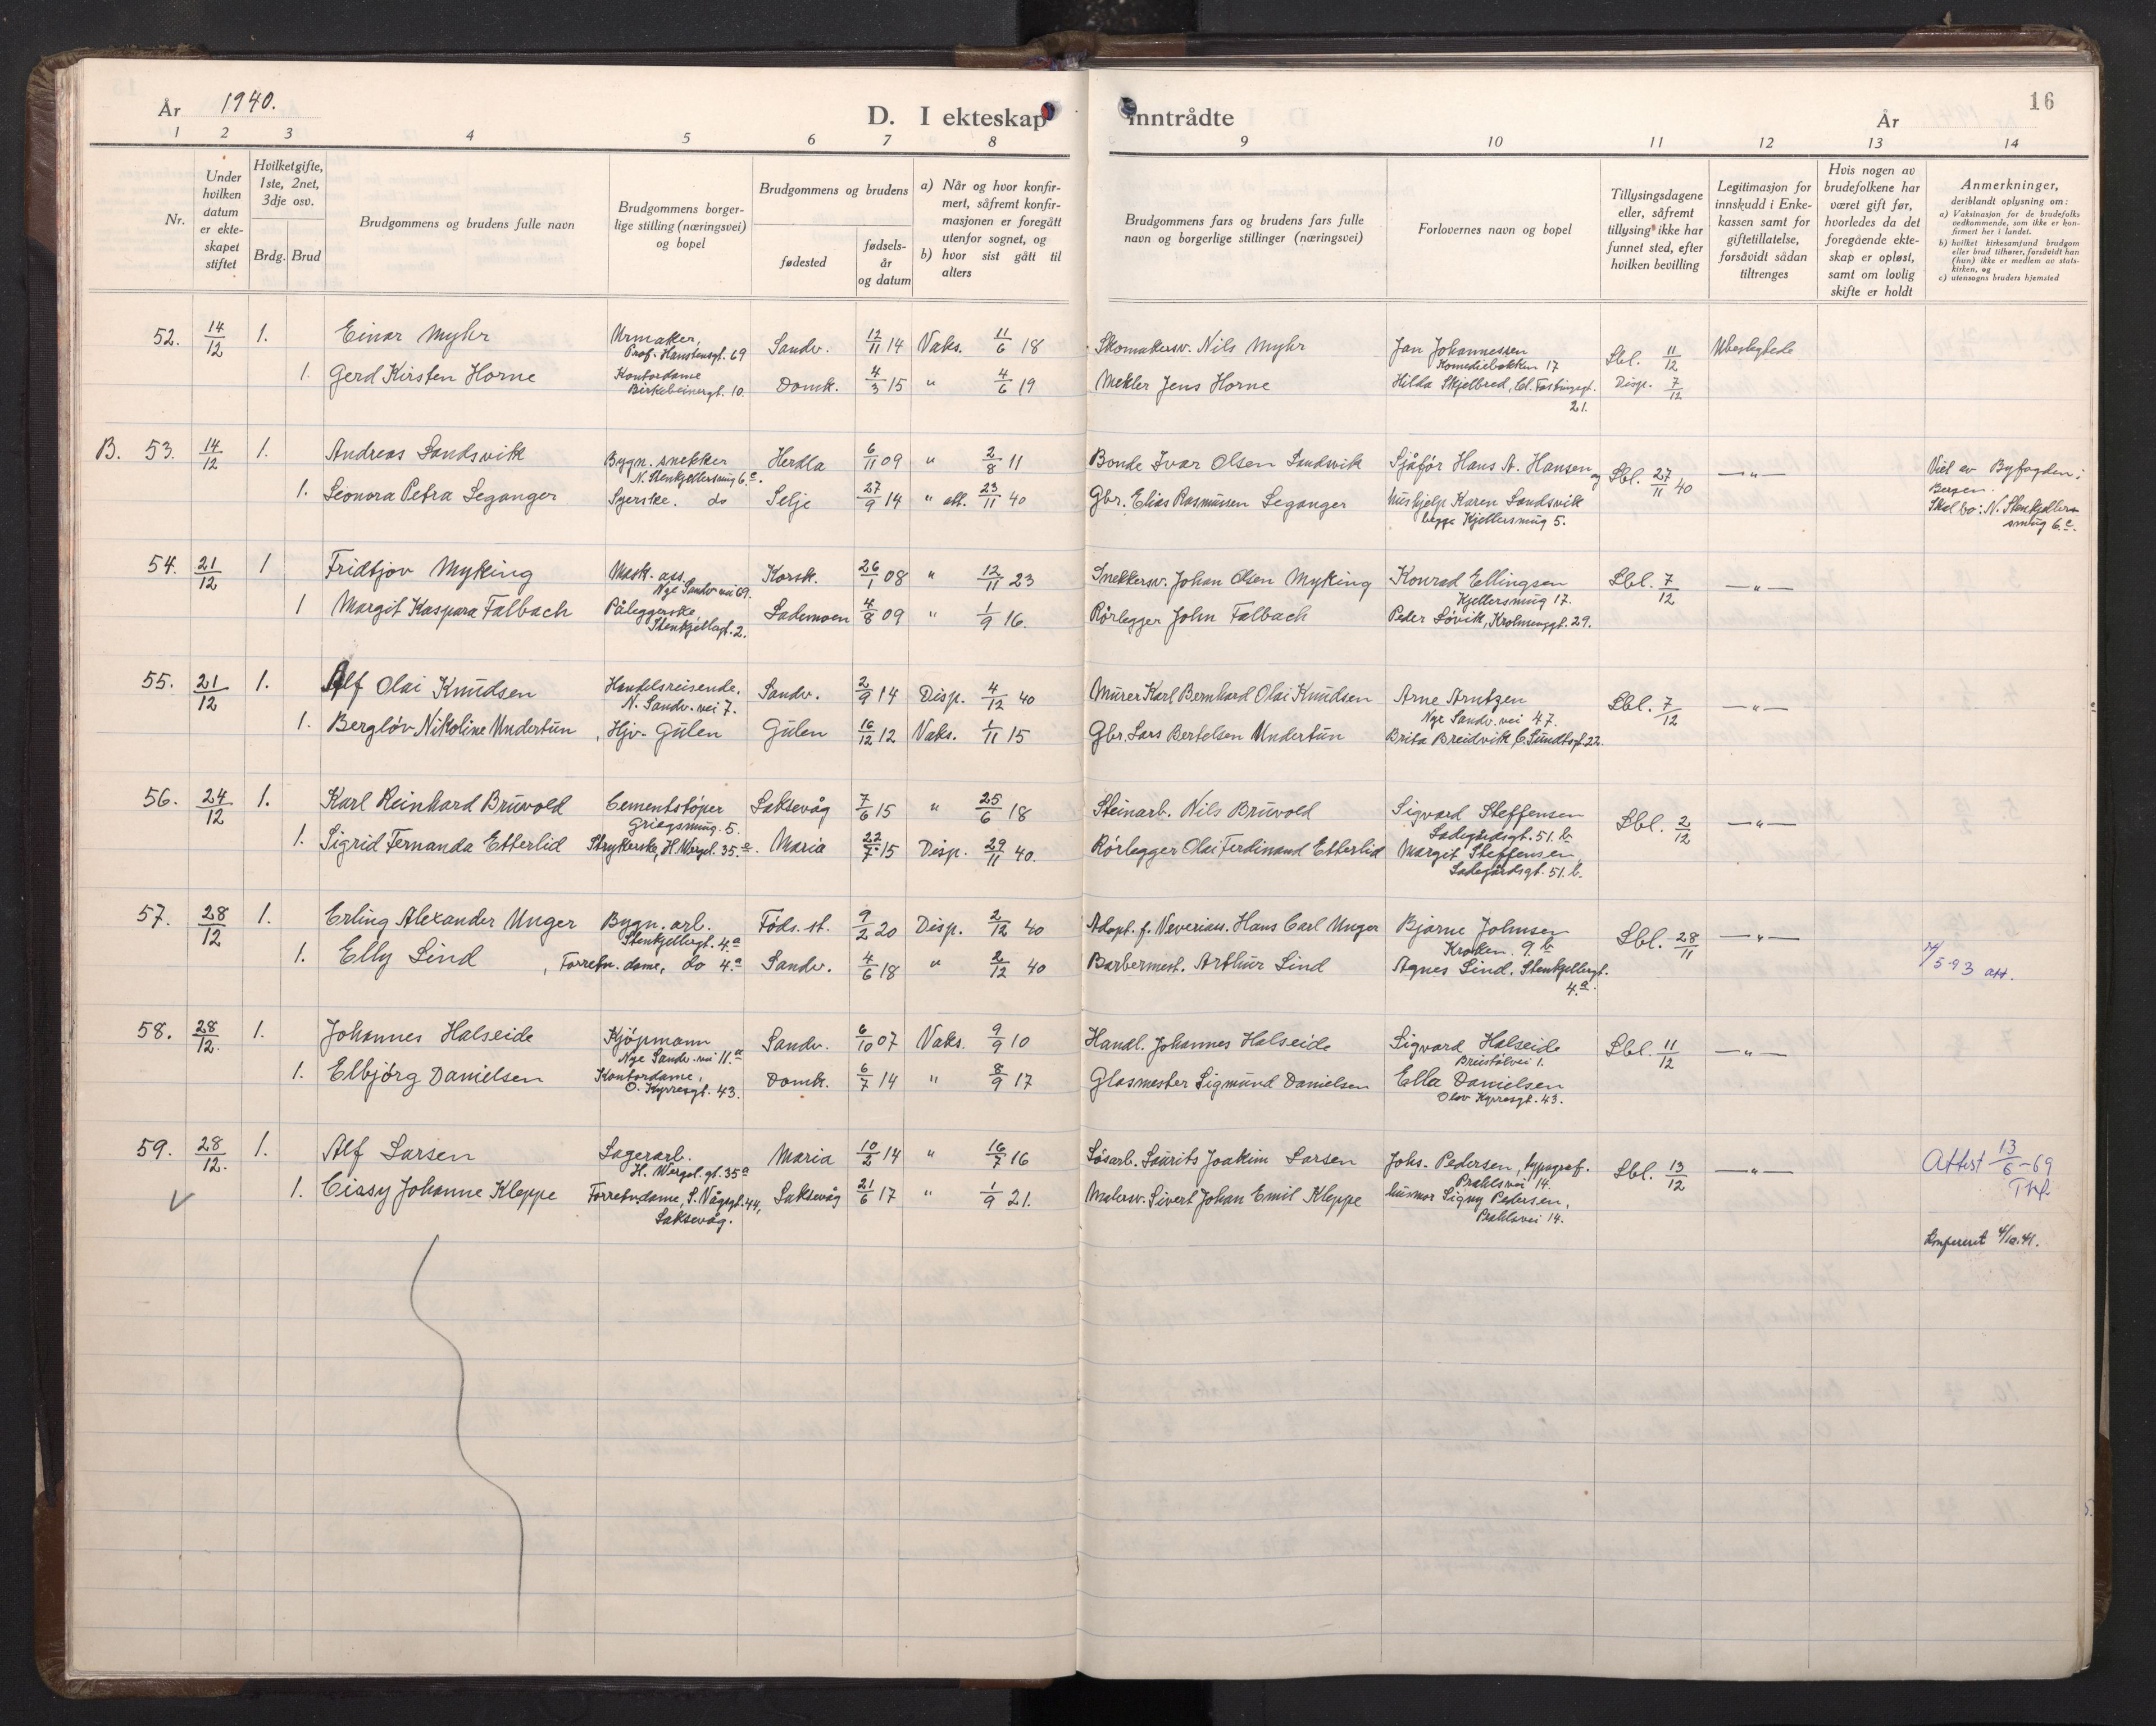 År 1940.
D. I ekteskap inntrådte
År
16
1 2 3 4 5 6 7 8 9 10 11 12 13 14
Nr.
Under hvilken datum er ekteskapet stiftet
Hvilket gifte, 1ste, 2net, 3dje osv.
Brdg. Brud
Brudgommens og brudens fulle navn
Brudgommens borgerlige stilling (næringsvei) og bopel
Brudgommens og brudens
fødested
fødselsår og datum
a) Når og hvor konfirmert, såfremt konfirmasjonen er foregått utenfor sognet, og
b) hvor sist gått til alters
Brudgommens fars og brudens fars fulle navn og borgerlige stillinger (næringsvei)
Forlovernes navn og bopel
Tillysingsdagene eller, såfremt tillysing ikke har funnet sted, efter hvilken bevilling
Legitimasjon for innskudd i Enkekassen samt for giftetillatelse, forsåvidt sådan tiltrenges
Hvis nogen av brudefolkene har været gift før, hvorledes da det foregående ekteskap er opløst, samt om lovlig skifte er holdt
Anmerkninger, deriblandt oplysning om:
a) Vaksinasjon for de brudefolks vedkommende, som ikke er konfirmert her i landet.
b) hvilket kirkesamfund brudgom eller brud tilhører, forsåvidt han (hun) ikke er medlem av statskirken, og
c) utensogns bruders hjemsted
52. 14/12 1. Einar Myhr Urmaker, Prof. Hanstensgt. 69 Sandv. 12/11 14 Vaks. 11/6 18 Skomakersv. Nils Myhr Jan Johannessen Komediebakken 17 Lbl. 11/12 Ubeslegtede
1. Gerd Kirsten Horne Kontordame Birkebeinergt. 10. Domk. 4/3 15 " 4/6 19 Mekler Jens Horne Hilda Skjelbred, Cl. Fastingsgt. 21. Disp. 7/12
B. 53. 14/12 1. Andreas Landsvik Bygn. snekker N. Stenkjellersmug 6.c. Herdla 6/11 09 " 2/8 11 Bonde Ivar Olsen Landsvik Sjåfør Hans A. Hansen og Lbl. 27/11 40 —"— Viet av Byfogden i Bergen.
1. Leonora Petra Leganger Syerske. do Selje 27/9 14 " att. 23/11 40 Gbr. Elias Rasmussen Leganger hushjelp Karen Landsvik begge Kjellersmug 5. Skal bo: N. Stenkjellersmug 6.c.
54. 21/12 1 Fridtjov Myking Mask. ass. Nye Sandv. vei 69. Korsk. 26/1 08 " 12/11 23 Snekkersv. Johan Olsen Myking Konrad Ellingsen Kjellersmug 17. Lbl. 7/12 —"—
1 Margit Kaspara Falbach Påleggerske Stenkjellergt. 2. Lademoen 4/8 09 " 1/9 16. Rørlegger John Falbach Peder Løvik, Krohnengt. 29.
55. 21/12 1. Alf Olai Knudsen Handelsreisende, N. Sandv. vei 7. Sandv. 2/9 14 Disp. 4/12 40 Murer Karl Bernhard Olai Knudsen Arne Arntzen Nye Sandv. vei 47. Lbl. 7/12 —"—
1. Bergløv Nikoline Undertun, Hjv. Gulen Gulen 16/12 12 Vaks. 1/11 15 Gbr. Lars Bertelsen Undertun Brita Breidvik C. Sundtsgt. 22.
56. 24/12 1. Karl Reinhard Bruvold Cementstøper Griegsmug. 5. Laksevåg 7/6 15 " 25/6 18 Steinarb. Nils Bruvold Sigvard Steffensen Ladegårdsgt. 51. b. Lbl. 2/12 —"—
1. Sigrid Fernanda Etterlid Strykerske, H. Wergel. 35.a. Maria 22/7 15 Disp. 29/11 40. Rørlegger Olai Ferdinand Etterlid Margit Steffensen, Ladegårdsgt. 51. b.
57. 28/12 1. Erling Alexander Unger Bygn. arb. Stenkjellergt. 4.a Føds. st. 9/2 20 Disp. 2/12 40 Adopt. f. Hans Carl Unger Bjarne Johnsen Kroken. 9. b Lbl. 28/11 —"—
1. Elly Lind, Forretn. dame, do 4.a Sandv. 4/6 18 " 2/12 40 Barbermest. Arthur Lind Agnes Lind. Stenkjellergt. 4.a. 5-93 att.
58. 28/12. 1. Johannes Halseide Kjøpmann Nye Sandv. vei 11.a Sandv. 6/10 07 Vaks. 9/9 10 Handl. Johannes Halseide Sigvard Halseide Breistølvei 1. Lbl. 11/12 —"—
1. Elbjørg Danielsen Kontordame, O. Kyrresgt. 43. Domk. 6/7 14 " 8/9 17 Glasmester Sigmund Danielsen Ella Danielsen Olav Kyrresgt. 43.
59. 28/12. 1. Alf Larsen Lagerarb. H. Wergel. gt. 35a Maria 10/2 14 " 16/7 16 Løsarb. Laurits Joakim Larsen Johs. Pedersen, typograf. Prahlsvei 14. Lbl. 13/12 —"— Attest 13/6-69
1. Cissy Johanne Kleppe Forretn. dame, S. Vågsgt. 44, Laksevåg. Laksevåg 21/6 17 " 1/9 21. Malersv. Sivert Johan Emil Kleppe husmor Signy Pedersen, Prahlsvei 14.
Konfereret 4/10.41.